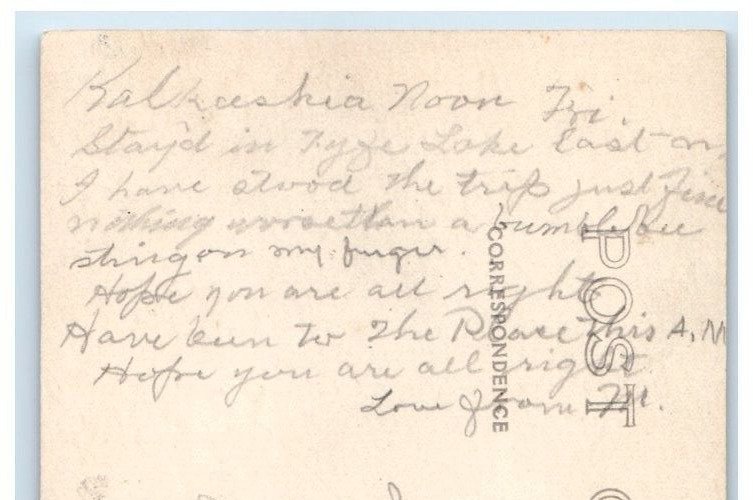 Kalkaskia Noon Fri.
Stay'd in Fyfe Lake last n
I have stood the trip just fine
nothing worse than a bumble bee
sting on my finger.
Hope you are all right
Have been to the Place this A.M
Hope you are all right
Love from M.
POST
CORRESPONDENCE